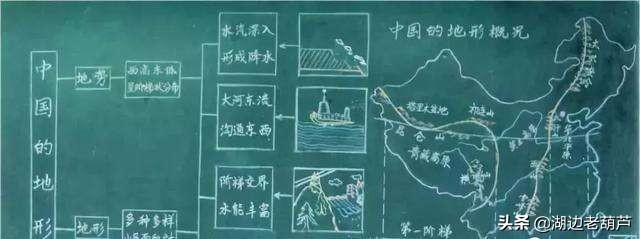 中国的地形
地势
西高东低
呈阶梯状分布
水汽深入
形成降水
大河东流
沟通东西
阶梯交界
水能丰富
地形
多种多样
中国的地形概况
大兴安岭
塔里木盆地
祁连山
昆仑山
青藏高原
横
山
第一阶梯
头条 @湖边老葫芦